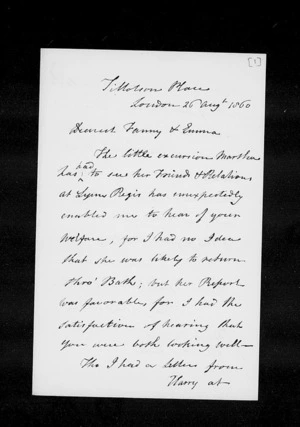 [1]
Tillotson Place
London 26 Augt 1860
Dearest Fanny & Emma
The little excursion Martha
has had to see her Friends & Relations
at Lyme Regis has unexpectedly
enabled me to hear of your
welfare, for I had no Idea
that she was likely to return
thro' Bath; but her Report
was favorable, for I had the
satisfaction of hearing that
you were both looking well—
Tho I had a letter from
Harry at